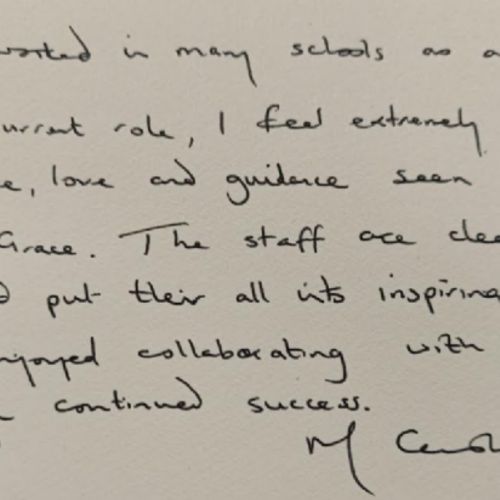 worked in many schools as a
current role, I feel extremely
e, love and guidance seen
Grace. The staff are clea
put their all into inspiring
njoyed collaborating with
continued success.
M